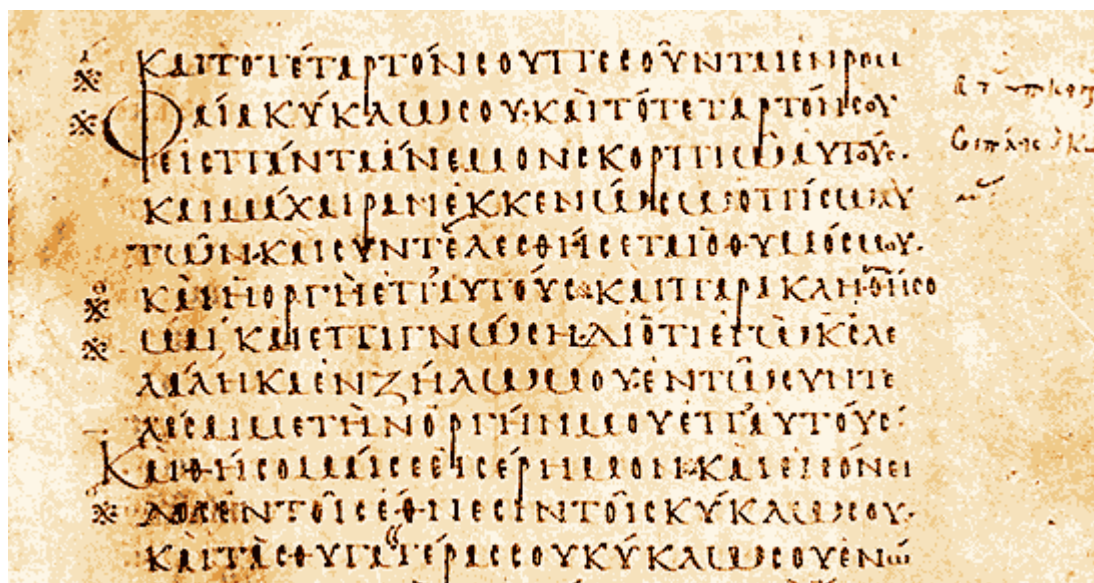 ΚΑΙΤΟΤΕΤΑΡΤΟΝCΟΥΠΕCΟΥΝΤΑΙΕΝΡΟΜ
ΦΑΙΑΚΥΚΛΩCΟΥ·ΚΑΙΤΟΤΕΤΑΡΤΟΝCΟΥ
ΕΙCΠΑΝΤΑΑΝΕΜΟΝCΚΟΡΠΙΩΑΥΤΟΥC·
ΚΑΙΜΑΧΑΙΡΑΝΕΚΚΕΝΩCΩΟΠΙCΩΑΥ
ΤΩΝ·ΚΑΙCΥΝΤΕΛΕCΘΗCΕΤΑΙΟΘΥΜΟCΜΟΥ·
ΚΑΙΗΟΡΓΗΕΠΑΥΤΟΥC·ΚΑΙΠΑΡΑΚΛΗΘΗCΟ
ΜΑΙ·ΚΑΙΕΠΙΓΝΩCΗ·ΔΙΟΤΙΕΓΩΚCΛΕ
ΛΑΛΗΚΑΕΝΖΗΛΩΜΟΥ·ΕΝΤΩCΥΝΤΕ
ΛΕCΑΙΜΕΤΗΝΟΡΓΗΝΜΟΥΕΠΑΥΤΟΥC·
ΚΑΙΘΗCΟΜΑΙCΕΕΙCΕΡΗΜΟΝ·ΚΑΙΕΙCΟΝΕΙ
ΔΟCΕΝΤΟΙCΕΘΝΕCΙΝΤΟΙCΚΥΚΛΩCΟΥ·
ΚΑΙΤΑCΘΥΓΑΤΕΡΑCCΟΥΚΥΚΛΩCΟΥΕΝΩ